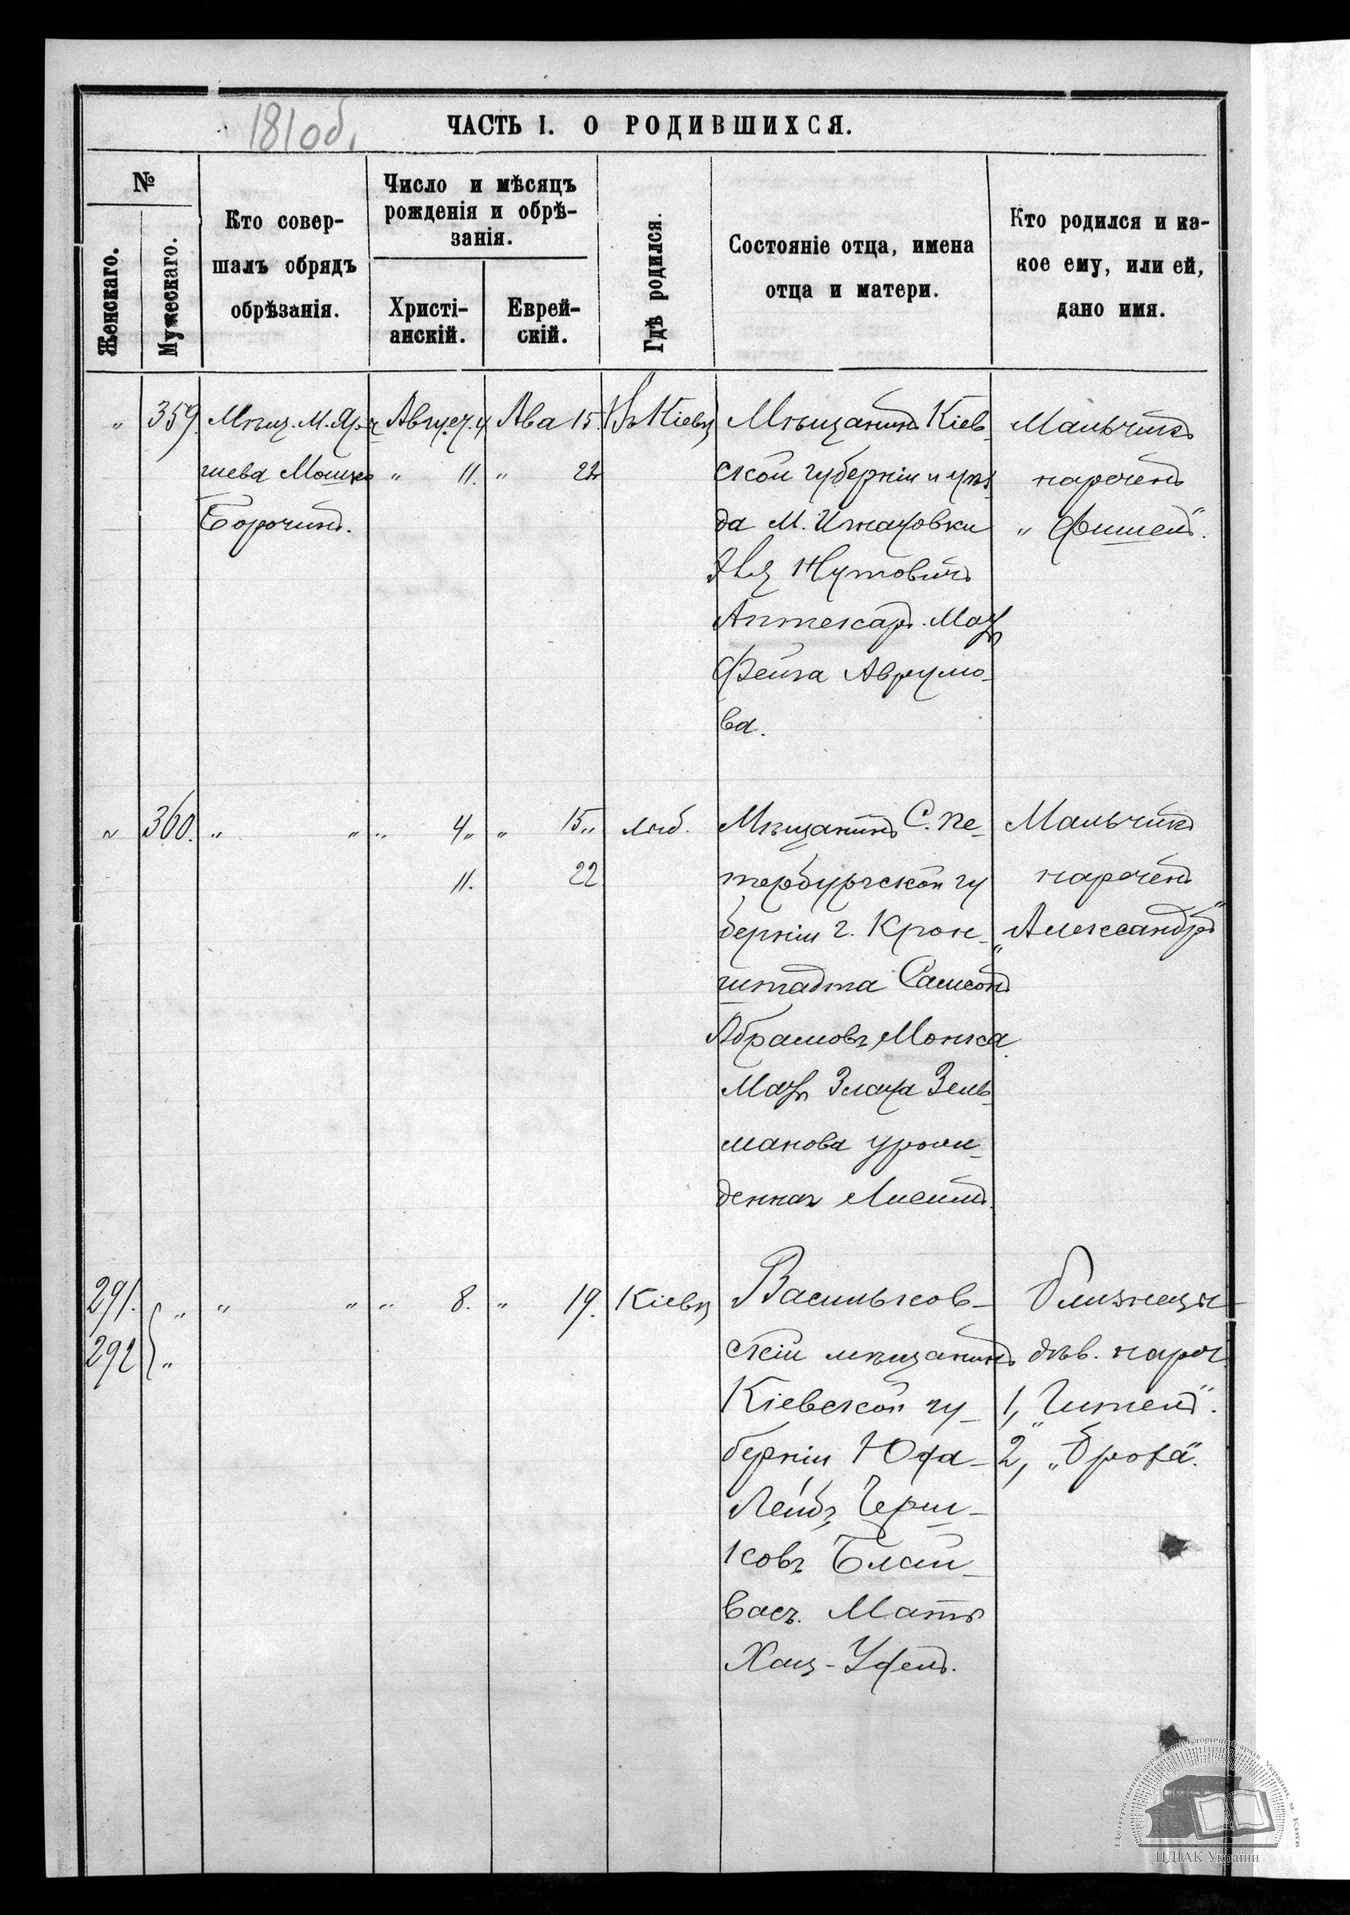 181 об.
ЧАСТЬ I. О РОДИВШИХСЯ.
№
Женскаго.
Мужескаго.
Кто совер-
шалъ обрядъ
обрѣзанія.
Число и мѣсяцъ
рожденія и обрѣ-
занія.
Христі-
анскій.
Еврей-
скій.
Гдѣ родился.
Состояніе отца, имена
отца и матери.
Кто родился и ка-
кое ему, или ей,
дано имя.
" 359. Мѣщ. М.
Мошко
Борочинъ.
Август. 4 Ава 15.
" 11. " 22
Въ Кіевѣ
Мѣщанинъ Кіев-
ской губерніи и уѣз
да М. Игнатовки
Нутовичъ
Аптекарь. Мать
Фейга Аврумо-
ва.
Мальчикъ
нареченъ
"Фишель".
" 360. " " " 4 " " 15 "
11. 22
Мѣщанинъ С. Пе-
тербургской гу
берніи г. Крон-
штадта Самсонъ
Абрамовъ Монка
Мать Злата Зель-
манова урож-
денная
Мальчикъ
нареченъ
"Александръ"
291. " " " " 8. " 19. Кіевѣ
292 "
Васильков-
скій мѣщанинъ
Кіевской гу-
берніи
Лейбъ
ковъ Блай-
васъ. Мать
Хая-
близнецы
дѣв. нареч.
1, "Гитель".
2, "Броха".
ЦДІАК України